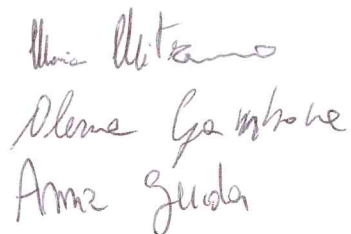 Maria Mitrano
Olema Gambone
Anna Guida